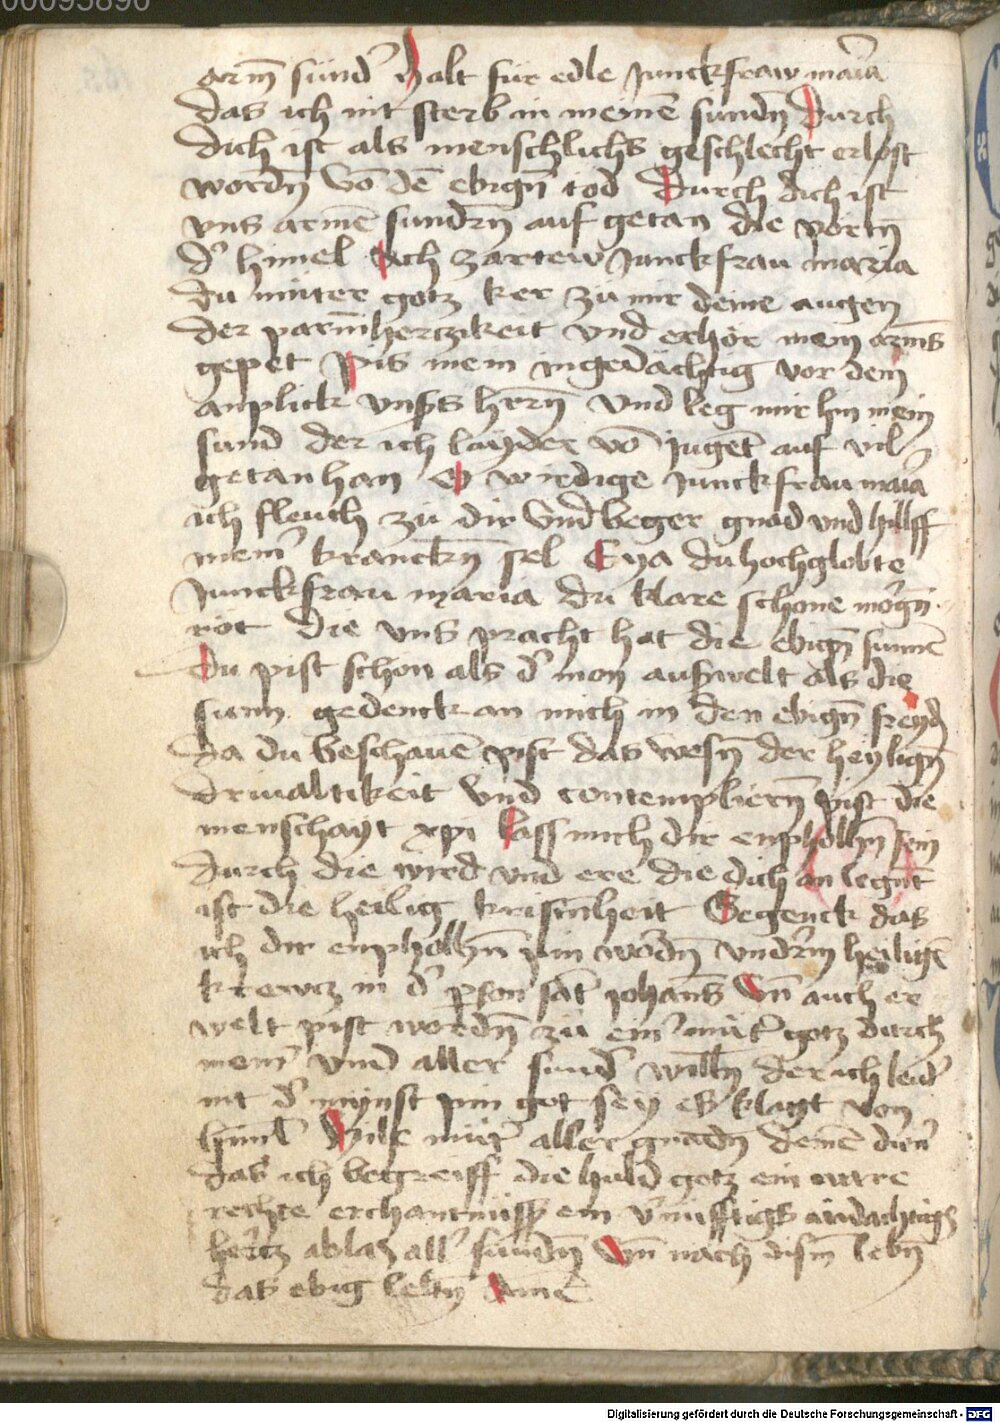 00095890
arm̄ sünd' halt für edle Junckfraw maīa
das ich nit sterb in meinē sundn̄ Durch
dich ist als menschlichs geschlecht erlost
wordn̄ vō dē ebign̄ tod Durch dich ist
vns armē sundrn̄ auf getan die portn̄
d' himel Ach zartew Junckfrau maria
du muter gotz ker zu mir deine augen
der parm̄hertzikeit vnd erhör mein arms
gepet Pis mein ingedächtig vor dem
anplick vnsers hern̄ vnd leg mir hin mein
sund der ich layder vō Juget auf vil
getan han O wirdige Junckfrau maīa
ich fleuch zu dir vnd beger gnad vnd hillff
mein' kranckn̄ sel Eya du hochglobte
Junckfrau maria du klare schone morgn̄
röt die vns pracht hat die ebign̄ sunnē
Du pist schon als d' mon außwelt als die
sunn gedenck an mich in den ebign̄ freyd
da du beschauē pist das wesn̄ der heylign̄
driualtikeit vnd contempliern̄ pist die
menschayt xpi lass mich dir enpholhn̄ sein
durch die wird vnd ere die dich an legnt
ist die heilig kristnheit Gegenck das
ich dir enpholhn̄ pin wordn̄ vnd'm heiligē
krewcz in d' pson sāt Johans Vn̄ auch er
welt pist wordn̄ zu ein' mut' gotz durch
mein' vnd aller sund' willn̄ der ich leid'
nit d' mynst pin got sey es klagt von
himl' Hilf mut' aller gnadn̄ deinē dien'
das ich begreiff die huld gotz ein ware
rechte erchantnüss ein v'nufftigs andachtigs
hertz ablas all' sundn̄ Vn̄ nach dism lebn̄
das ebig lebn̄ Amē
Digitalisierung gefördert durch die Deutsche Forschungsgemeinschaft - DFG